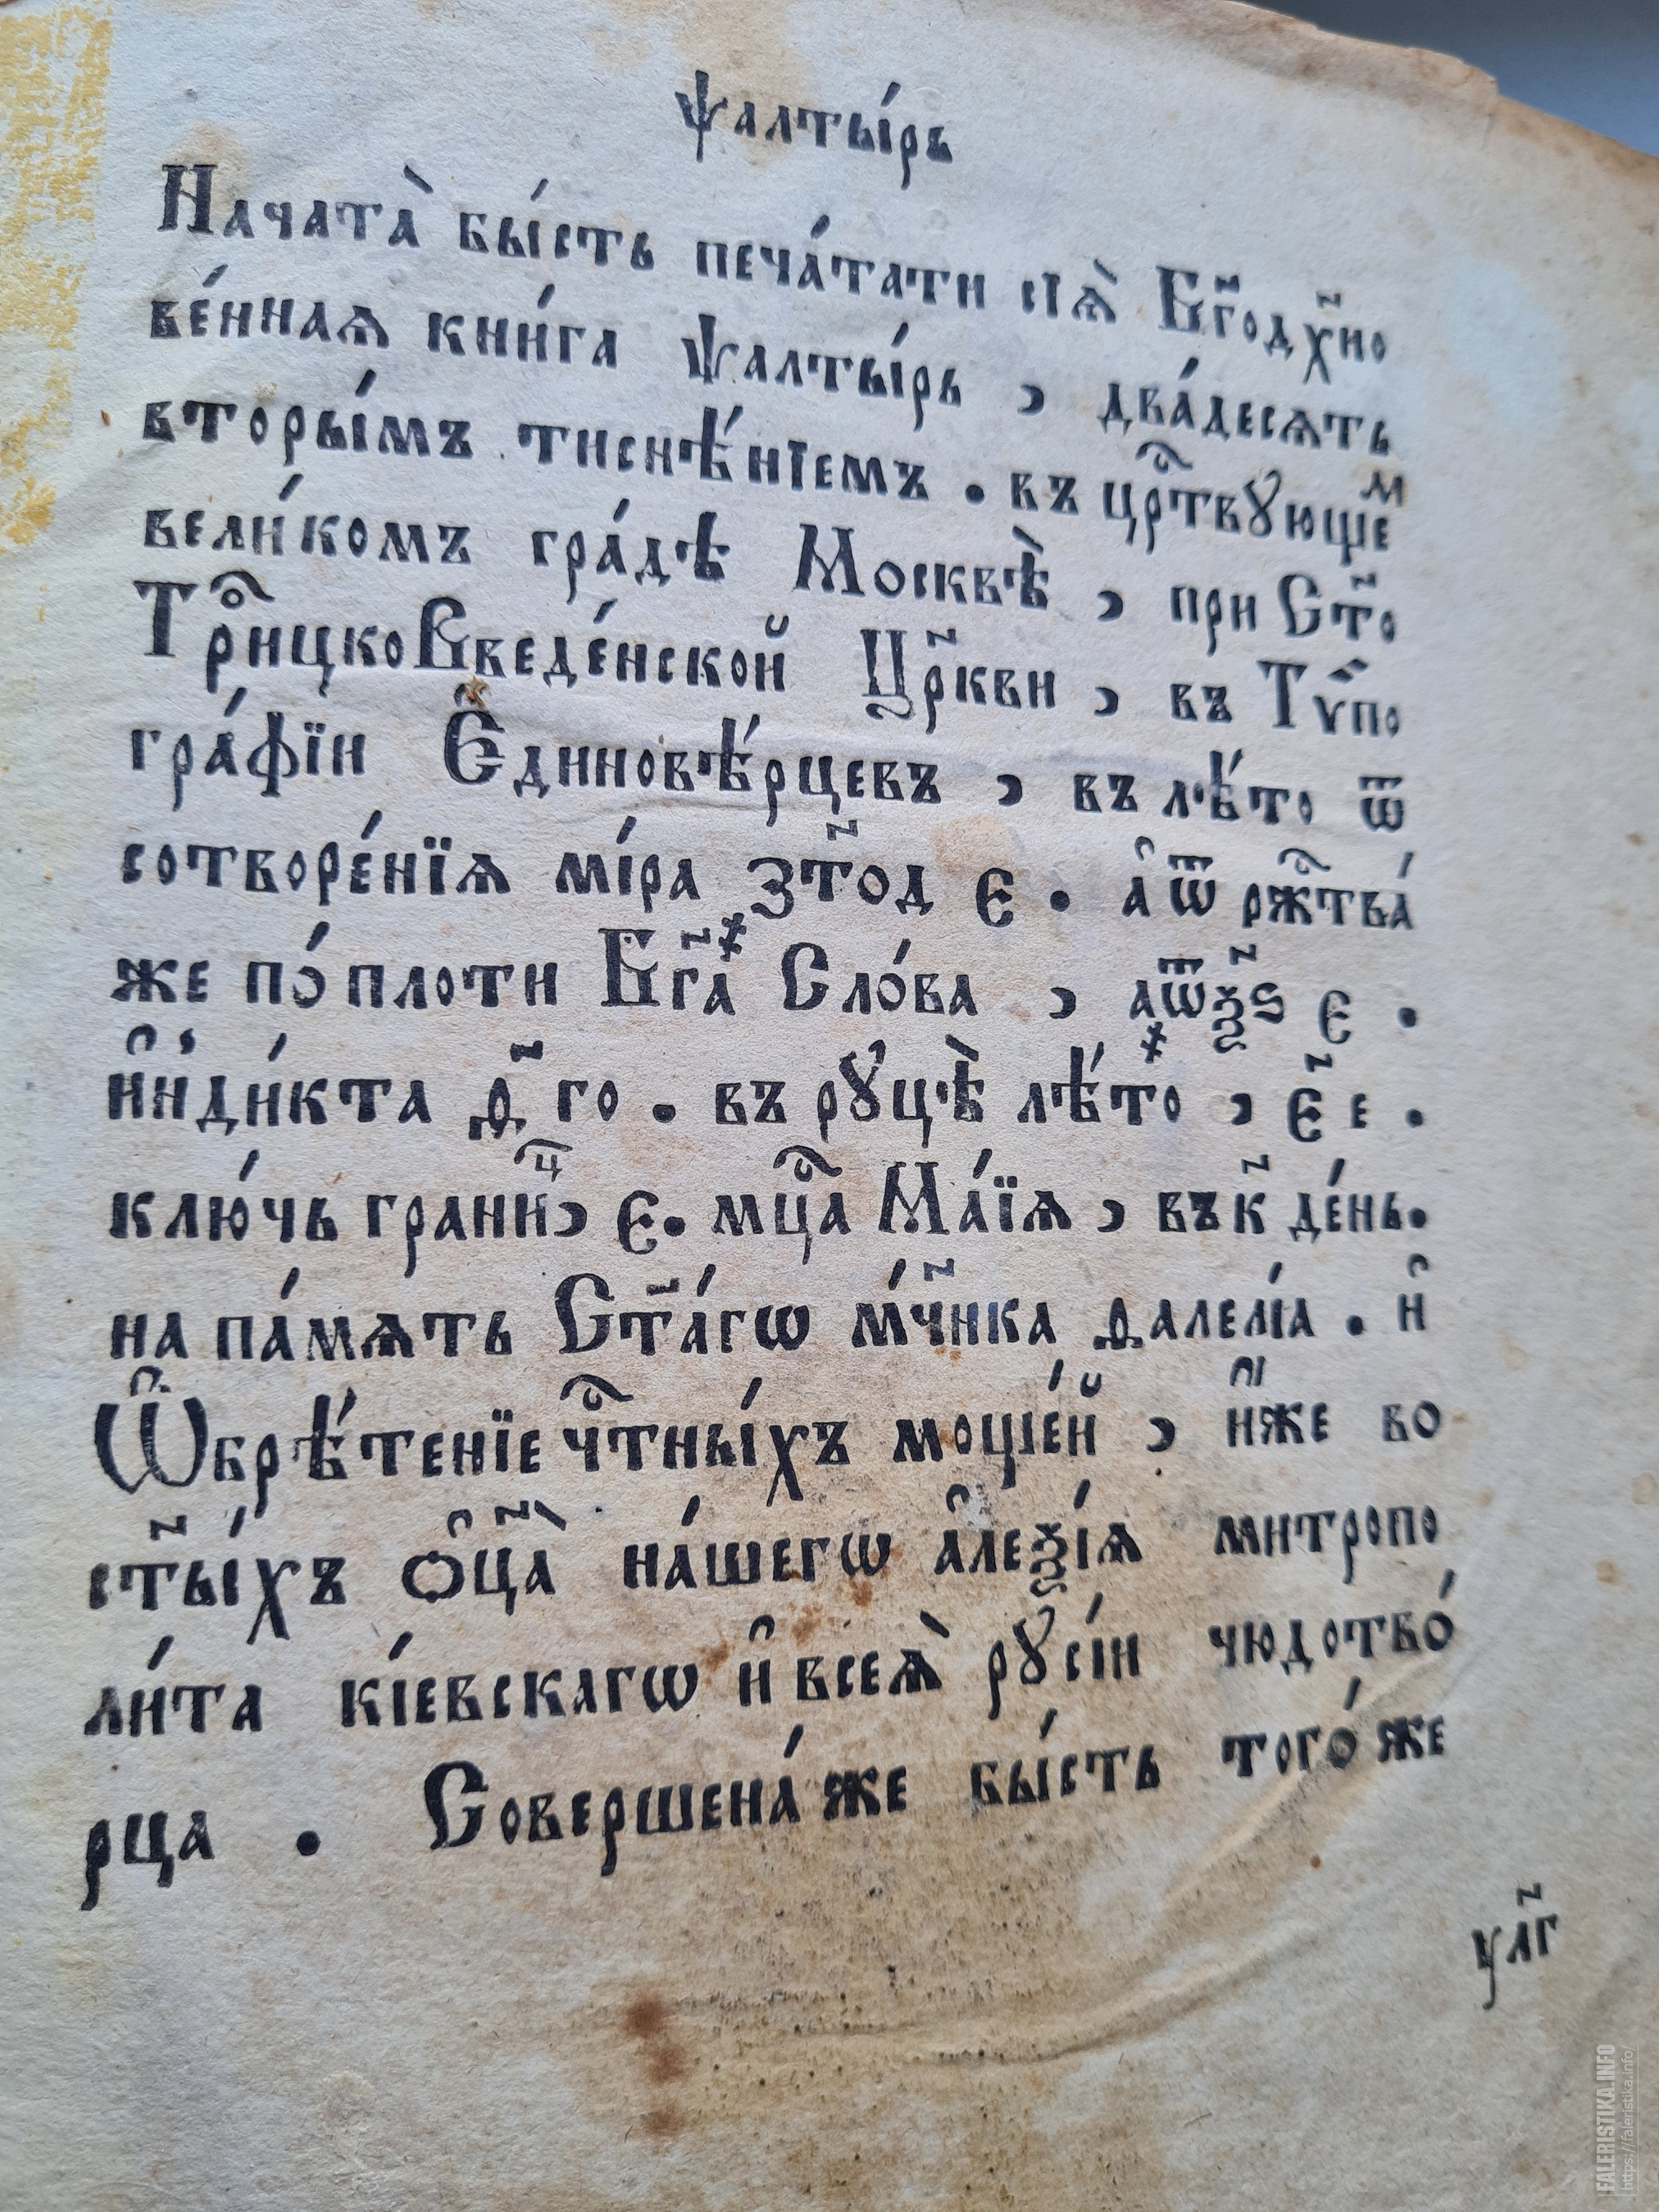 Ѱалты́рь
Начата̀ бы́сть печа́тати сїѧ̀ Бг҃одх҃но
ве́ннаѧ кни́га Ѱалты́рь , два́десѧть
вторы́мъ тиснѣ́нїемъ . въ црⷭ҇твꙋющеⷨ
вели́комъ гра́дѣ Москвѣ̀ , при Ст҃о
Трⷪ҇ицкоВведе́нской Цр҃кви , въ Тѵ́по
гра́фїи Є҆диновѣ́рцевъ , въ лѣ́то ѿ
сотворе́нїѧ мі́ра ҂зт҃од є . а҆ ѿ ржⷭ҇тва́
же по́ плоти Бг҃а Сло́ва , ҂аѿѯ҃ѕ є .
и҆нди́кта д҃ го . въ рꙋцѣ̀ лѣ́то , є҃ е .
клю́чь границⷣ , є . мцⷭ҇а Ма́їѧ , въ к҃ де́нь .
на па́мѧть Ст҃а́гѡ мч҃ника Далелі́а . и҆
Ѡ҆брѣ́тенїе чⷭ҇тны́хъ моще́й , и҆́же во
ст҃ы́хъ ѻ҆ц҃а̀ на́шегѡ а҆леѯі́ѧ митропо
ли́та кі́евскагѡ и҆ всеѧ̀ рꙋсі́и чюдотво́
рца . Совершена́ же бы́сть того́ же
ул҃г
FALERISTIKA.INFO
https://faleristika.info/